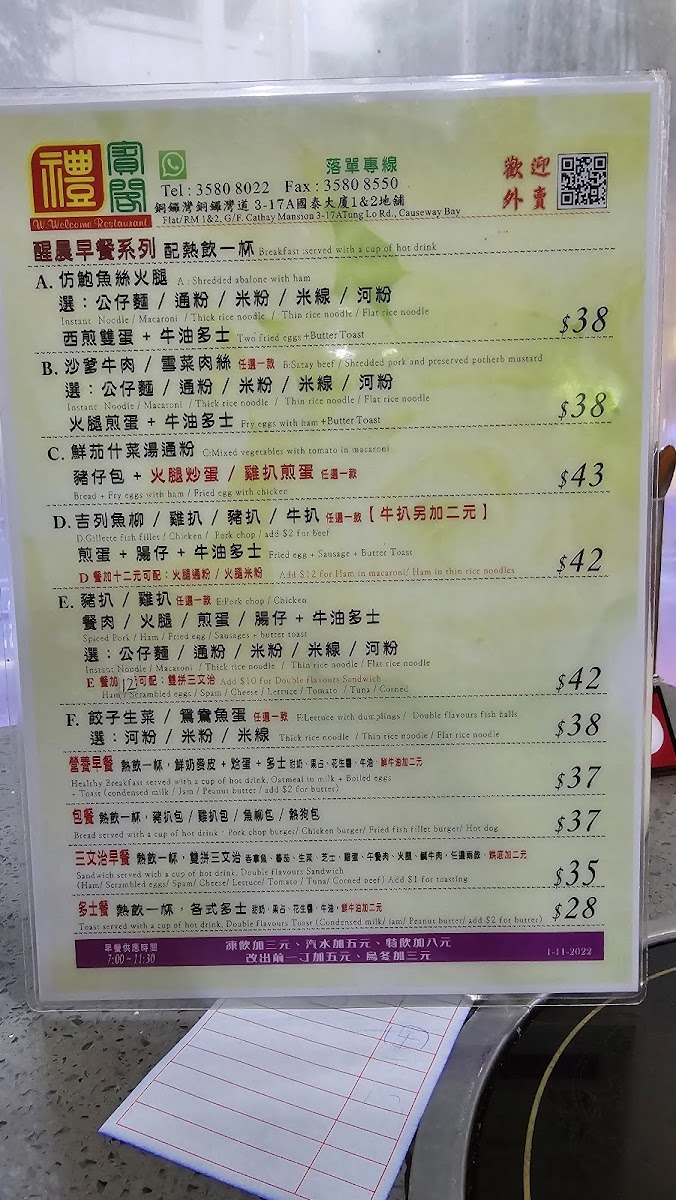 禮 賓閣
W Welcome Restaurant
落單專線
歡迎外賣
Tel : 3580 8022 Fax : 3580 8550
銅鑼灣銅鑼灣道 3-17A國泰大廈1&2地舖
Flat/RM 1&2, G/F. Cathay Mansion 3-17ATung Lo Rd., Causeway Bay
醒晨早餐系列 配熱飲一杯 Breakfast served with a cup of hot drink
A. 仿鮑魚絲火腿 A : Shredded abalone with ham
選：公仔麵 / 通粉 / 米粉 / 米線 / 河粉
Instant Noodle / Macaroni / Thick rice noodle / Thin rice noodle / Flat rice noodle
西煎雙蛋 + 牛油多士 Two fried eggs +Butter Toast
$38
B. 沙爹牛肉 / 雪菜肉絲 任選一款 B:Satay beef / Shredded pork and preserved potherb mustard
選：公仔麵 / 通粉 / 米粉 / 米線 / 河粉
Instant Noodle / Macaroni / Thick rice noodle / Thin rice noodle / Flat rice noodle
火腿煎蛋 + 牛油多士 Fry eggs with ham +Butter Toast
$38
C. 鮮茄什菜湯通粉 C:Mixed vegetables with tomato in macaroni
豬仔包 + 火腿炒蛋 / 雞扒煎蛋 任選一款
Bread + Fry eggs with ham / Fried egg with chicken
$43
D. 吉列魚柳 / 雞扒 / 豬扒 / 牛扒 任選一款【牛扒另加二元】
D.Gillette fish fillet / Chicken / Pork chop / add $2 for beef
煎蛋 + 腸仔 + 牛油多士 Fried egg + Sausage + Butter Toast
D 餐加十二元可配：火腿通粉 / 火腿米粉 Add $12 for Ham in macaroni/ Ham in thin rice noodles
$42
E. 豬扒 / 雞扒 任選一款 E:Pork chop / Chicken
餐肉 / 火腿 / 煎蛋 / 腸仔 + 牛油多士
Spiced Pork / Ham / Fried egg / Sausages + butter toast
選：公仔麵 / 通粉 / 米粉 / 米線 / 河粉
Instant Noodle / Macaroni / Thick rice noodle / Thin rice noodle / Flat rice noodle
E 餐加 12 可配：雙拼三文治 Add $10 for Double flavours Sandwich
Ham / Scrambled eggs / Spam / Cheese / Lettuce / Tomato / Tuna / Corned
$42
F. 餃子生菜 / 鴛鴦魚蛋 任選一款 F:Lettuce with dumplings / Double flavours fish balls
選：河粉 / 米粉 / 米線 Thick rice noodle / Thin rice noodle / Flat rice noodle
$38
營養早餐 熱飲一杯，鮮奶麥皮 + 烚蛋 + 多士 甜奶、果占、花生醬、牛油、鮮牛油加二元
Healthy Breakfast served with a cup of hot drink, Oatmeal in milk + Boiled eggs
+ Toast (condensed milk / Jam / Peanut butter / add $2 for butter)
$37
包餐 熱飲一杯，豬扒包 / 雞扒包 / 魚柳包 / 熱狗包
Bread served with a cup of hot drink : Pork chop burger/ Chicken burger/ Fried fish fillet burger/ Hot dog
$37
三文治早餐 熱飲一杯，雙拼三文治 吞拿魚、蕃茄、生菜、芝士、雞蛋、午餐肉、火腿、鹹牛肉，任選兩款，烘底加二元
Sandwich served with a cup of hot drink, Double flavours Sandwich
(Ham/ Scrambled eggs/ Spam/ Cheese/ Lettuce/ Tomato / Tuna/ Corned beef) Add $1 for toasting
$35
多士餐 熱飲一杯，各式多士 甜奶、果占、花生醬、牛油，鮮牛油加二元
Toast served with a cup of hot drink, Double flavours Toast (Condensed milk/ jam/ Peanut butter/ add $2 for butter)
$28
早餐供應時間
7:00~11:30
凍飲加三元、汽水加五元、特飲加八元
改出前一丁加五元、烏冬加三元
1-11-2022